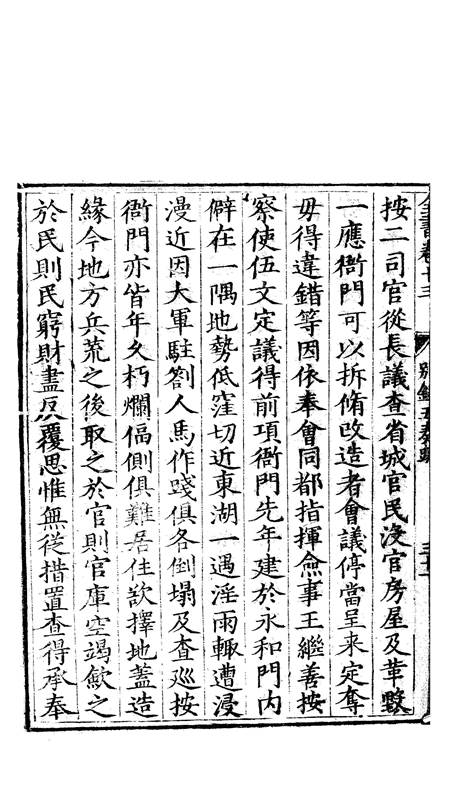 全書卷十三 別錄五奏疏 三十一
按二司官從長議查省城官民沒官房屋及革毀
一應衙門可以拆脩改造者會議停當呈来定奪
毋得違錯等因依奉會同都指揮僉事王繼善按
察使伍文定議得前項衙門先年建於永和門内
僻在一隅地勢低窪切近東湖一遇淫雨輙遭浸
漫近因大軍駐劄人馬作踐俱各倒塌及查廵按
衙門亦皆年久朽爛偪側俱難居住欲擇地蓋造
緣今地方兵荒之後取之於官則官庫空竭歛之
於民則民窮財盡反覆思惟無從措置查得承奉